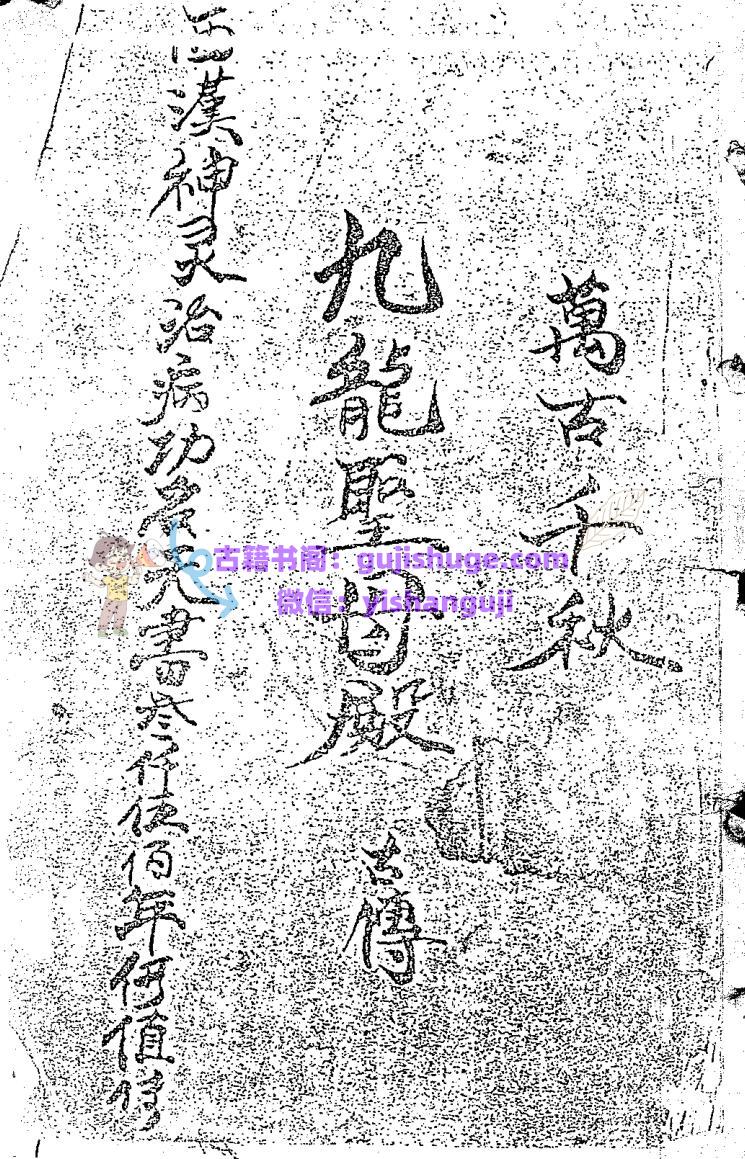 萬古千秋
九龍聖母殿 古傳
漢神灵治病功天書叁仟伍佰年何值
古籍书阁：gujishuge.com
微信：yishanguji